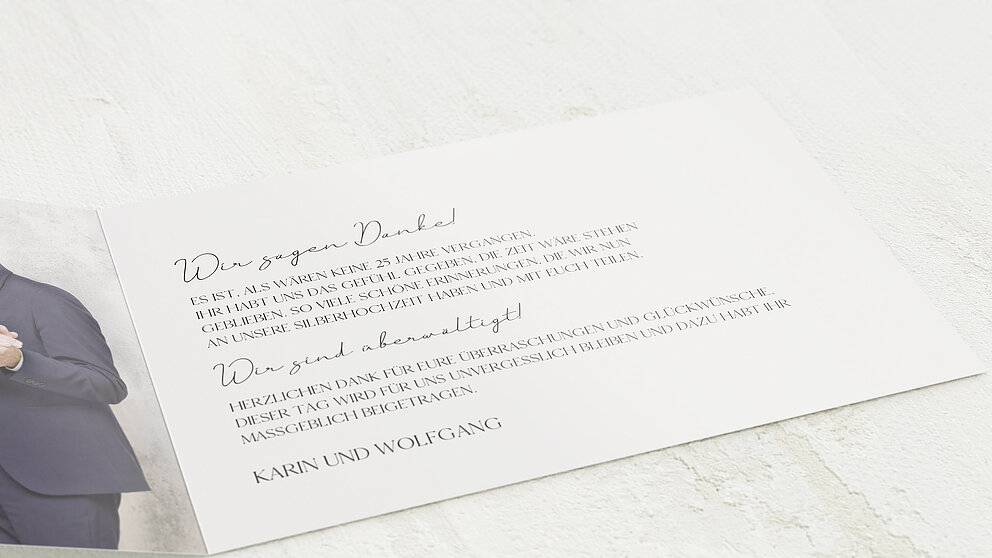 Wir sagen Danke!
ES IST, ALS WÄREN KEINE 25 JAHRE VERGANGEN.
IHR HABT UNS DAS GEFÜHL GEGEBEN, DIE ZEIT WÄRE STEHEN
GEBLIEBEN. SO VIELE SCHÖNE ERINNERUNGEN, DIE WIR NUN
AN UNSERE SILBERHOCHZEIT HABEN UND MIT EUCH TEILEN.
Wir sind überwältigt!
HERZLICHEN DANK FÜR EURE ÜBERRASCHUNGEN UND GLÜCKWÜNSCHE.
DIESER TAG WIRD FÜR UNS UNVERGESSLICH BLEIBEN UND DAZU HABT IHR
MASSGEBLICH BEIGETRAGEN.
KARIN UND WOLFGANG